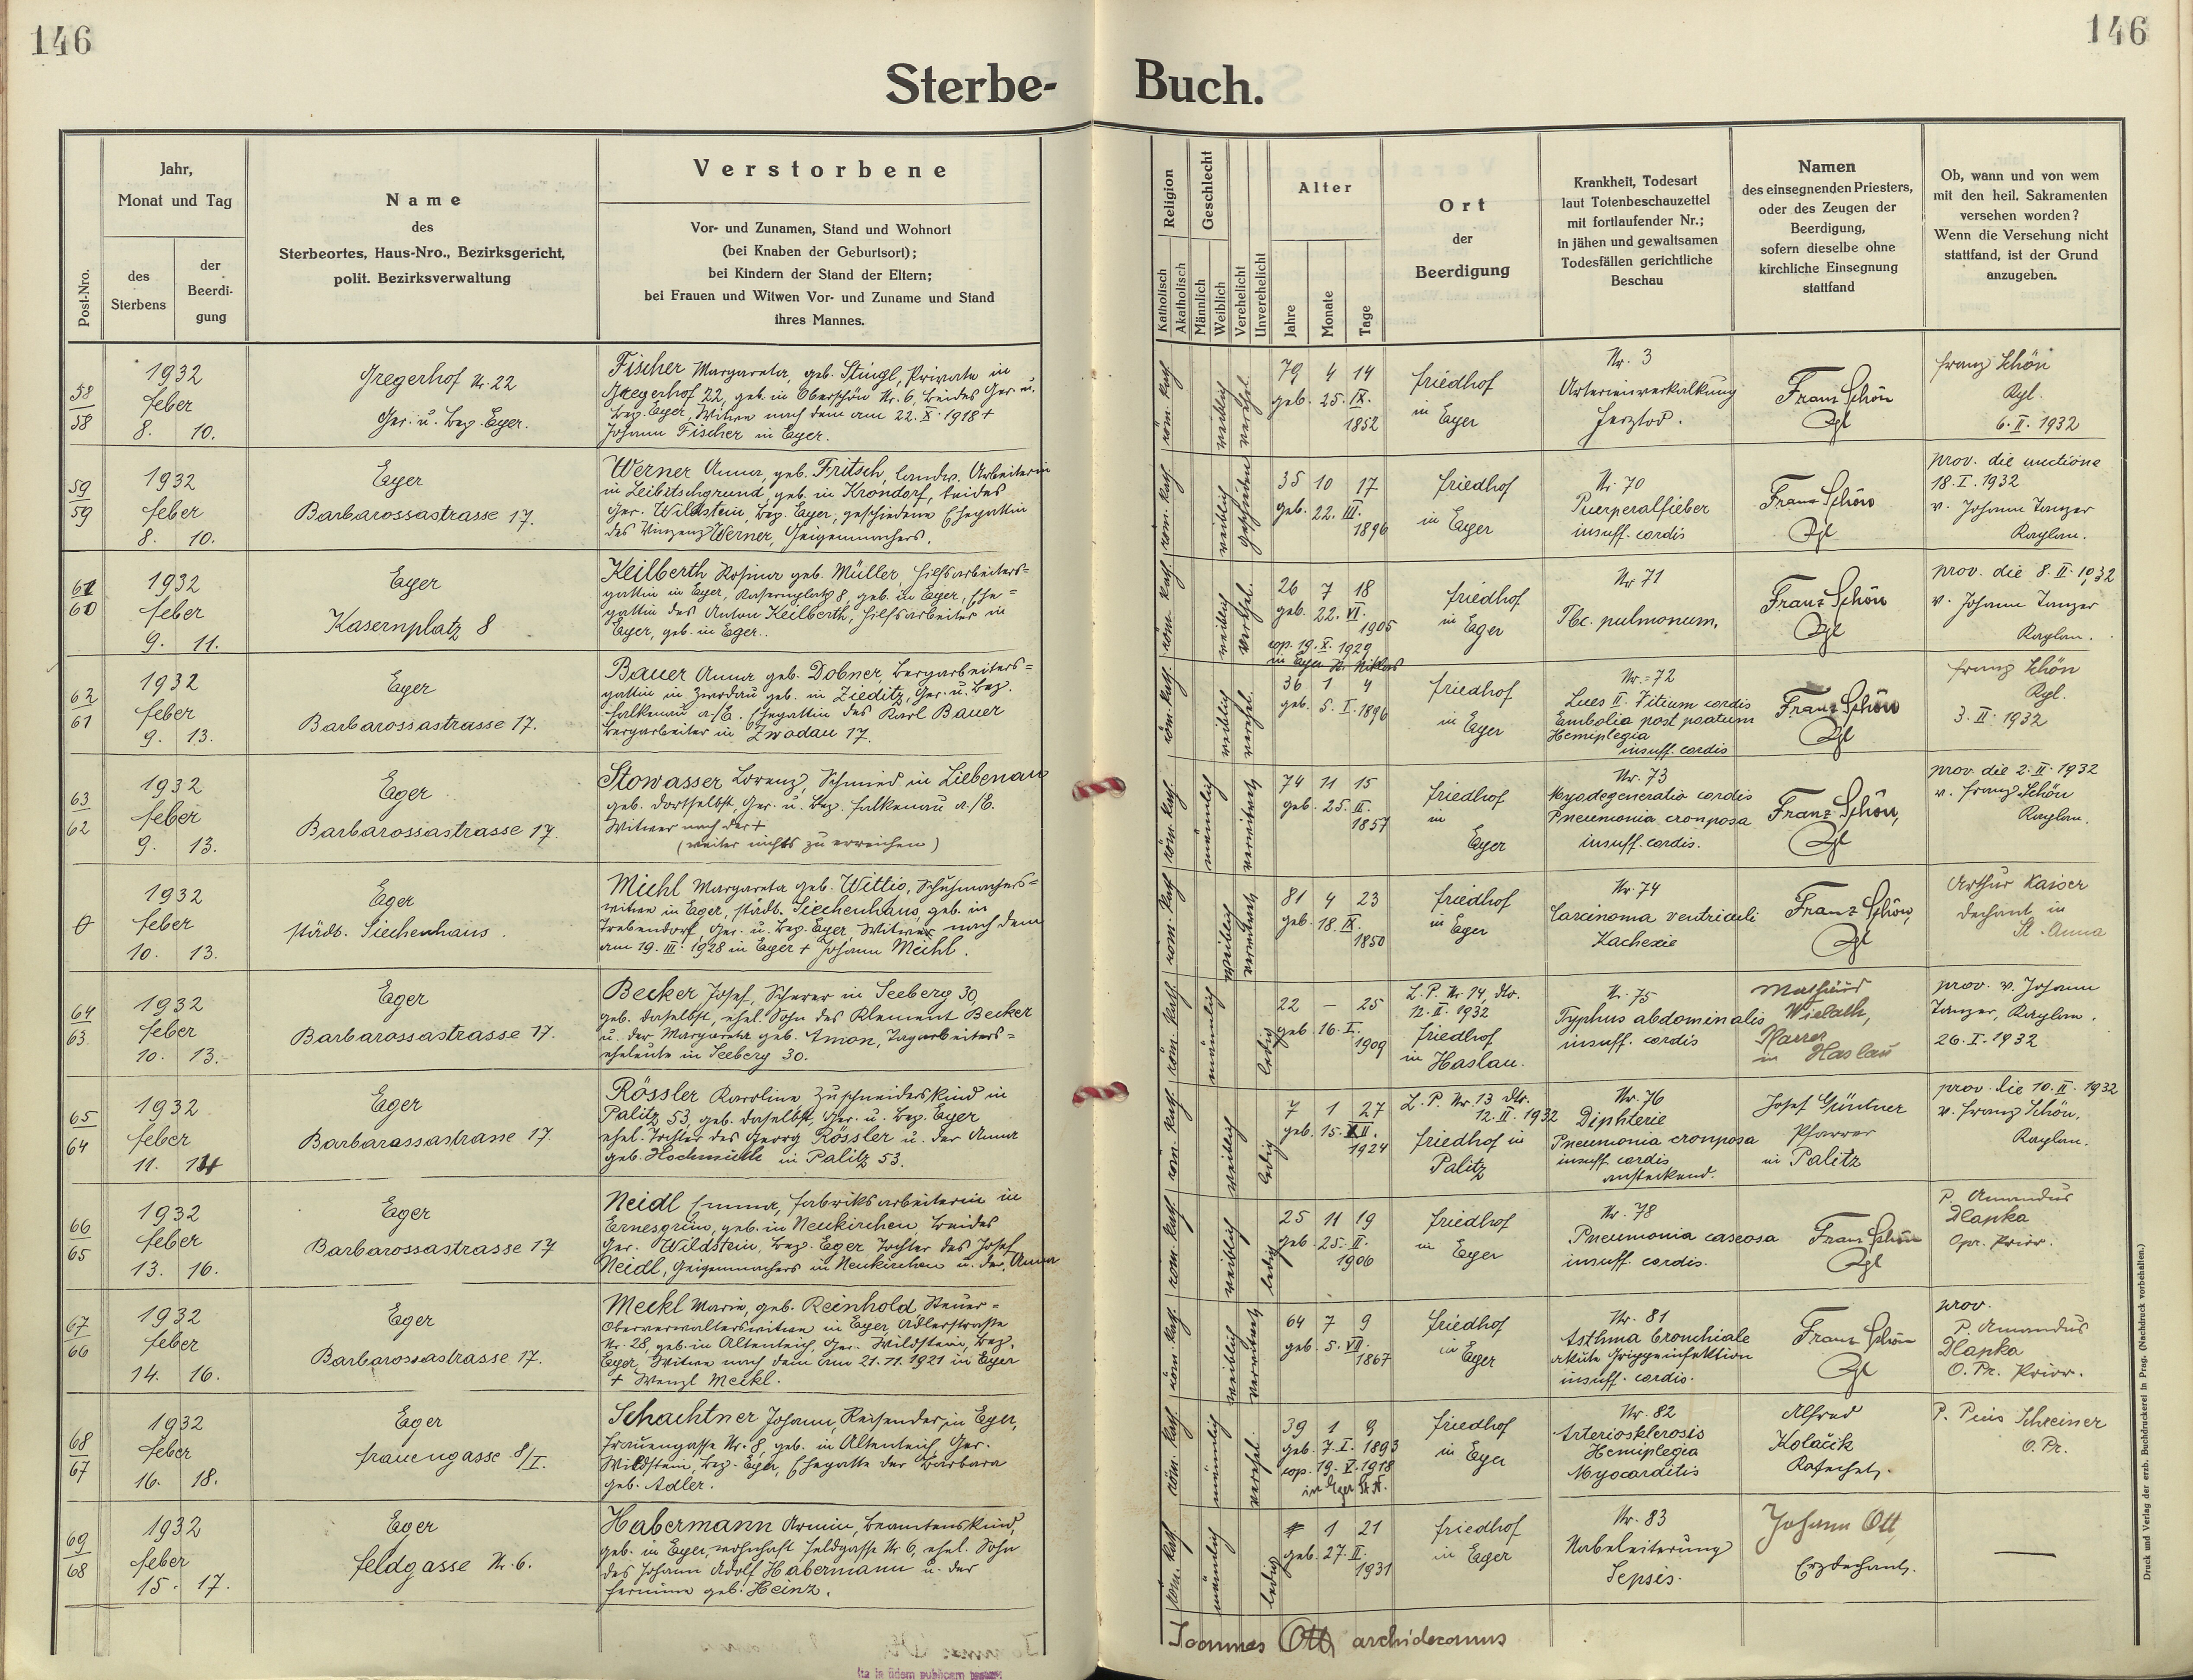 146
146
Sterbe-
Buch.
Post-Nro.
Jahr,
Monat und Tag
des
Sterbens
der
Beerdi-
gung
Name
des
Sterbeortes, Haus-Nro., Bezirksgericht,
polit. Bezirksverwaltung
Verstorbene
Vor- und Zunamen, Stand und Wohnort
(bei Knaben der Geburtsort);
bei Kindern der Stand der Eltern;
bei Frauen und Witwen Vor- und Zuname und Stand
ihres Mannes.
Religion
Katholisch
Akatholisch
Geschlecht
Männlich
Weiblich
Verehelicht
Unverehelicht
Alter
Jahre
Monate
Tage
Ort
der
Beerdigung
Krankheit, Todesart
laut Totenbeschauzettel
mit fortlaufender Nr.;
in jähen und gewaltsamen
Todesfällen gerichtliche
Beschau
Namen
des einsegnenden Priesters,
oder des Zeugen der
Beerdigung,
sofern dieselbe ohne
kirchliche Einsegnung
stattfand
Ob, wann und von wem
mit den heil. Sakramenten
versehen worden?
Wenn die Versehung nicht
stattfand, ist der Grund
anzugeben.
58
58
1932
feber
8. 10.
Gregerhof Nr. 22
Ger. u. Bez. Eger.
Fischer Margareta, geb. Stingl, Private in
Gregerhof 22, geb. in Oberschön Nr. 6, beides Ger. u.
Bez. Eger, Witwe nach dem am 22. X. 1918 +
Johann Fischer in Eger.
röm. kath.
weiblich
verehel.
79 4 14
geb. 25. IX.
1852
friedhof
in Eger
Nr. 3
Arterienverkalkung
Herztod.
Franz Schön
Kgl
franz Schön
Kgl.
6. II. 1932
59
59
1932
feber
8. 10.
Eger
Barbarossastrasse 17.
Werner Anna, geb. Fritsch, Landw. Arbeiterin
in Leibitschgrund, geb. in Krondorf, beides
Ger. Wildstein, Bez. Eger, geschiedene Ehegattin
des Vinzenz Werner, Geigenmachers.
röm. kath.
weiblich
geschieden
35 10 17
geb. 22. III.
1896
friedhof
in Eger
Nr. 70
Puerperalfieber
insuff. cordis
Franz Schön
Kgl
prov. die unctione
18. I. 1932
v. Johann Tanzer
Kaplan.
61
60
1932
feber
9. 11.
Eger
Kasernplatz 8
Keilberth Rosina geb. Müller, Hilfsarbeiters=
gattin in Eger, Kasernplatz 8, geb. in Eger, Ehe=
gattin des Anton Keilberth, Hilfsarbeiter in
Eger, geb. in Eger.
röm. kath.
weiblich
verehel.
26 7 18
geb. 22. VI.
1905
cop. 19. X. 1929
in Eger St. Niklas
friedhof
in Eger
Nr 71
Tbc. pulmonum.
Franz Schön
Kgl
prov. die 8. II. 1932
v. Johann Tanzer
Kaplan.
62
61
1932
feber
9. 13.
Eger
Barbarossastrasse 17.
Bauer Anna geb. Dobner, Bergarbeiters=
gattin in Zwodau geb. in Zieditz, Ger. u. Bez.
Falkenau a./E. Ehegattin des Karl Bauer
Bergarbeiter in Zwodau 17.
röm. kath.
weiblich
verehel.
36 1 4
geb. 5. I. 1896
friedhof
in Eger
Nr. = 72
Lues II. Vitium cordis
Embolia post partum
Hemiplegia
insuff. cordis
Franz Schön
Kgl
franz Schön
Kgl.
3. II. 1932
63
62
1932
feber
9. 13.
Eger
Barbarossastrasse 17.
Stowasser Lorenz, Schmied in Liebenau
geb. dortselbst, Ger. u. Bez. Falkenau a./E.
Witwer nach der +
(weiter nichts zu erreichen)
röm. kath.
männlich
verwitwet
74 11 15
geb. 25. II.
1857
friedhof
in
Eger
Nr. 73
Myodegeneratio cordis
Pneumonia crouposa
insuff. cordis.
Franz Schön,
Kgl
prov. die 2. II. 1932
v. franz Schön
Kaplan.
0
1932
feber
10. 13.
Eger
städt. Siechenhaus.
Miehl Margareta geb. Wittig, Schuhmachers=
witwe in Eger, städt. Siechenhaus, geb. in
Trebendorf, Ger. u. Bez. Eger Witwe nach dem
am 19. III. 1928 in Eger + Johann Miehl.
röm. kath.
weiblich
verwitwet
81 4 23
geb. 18. IX.
1850
friedhof
in Eger
Nr. 74
Carcinoma ventriculi
Kachexie
Franz Schön,
Kgl
Arthur Kaiser
Dechant in
St. Anna
64
63
1932
feber
10. 13.
Eger
Barbarossastrasse 17.
Becker Josef, Scherer in Seeberg 30,
geb. daselbst, ehel. Sohn des Klement Becker
u. der Margareta geb. Amon, Tagarbeiters=
eheleute in Seeberg 30.
röm. kath.
männlich
ledig
22 — 25
geb. 16. I.
1909
L. P. Nr. 14, dto.
12. II. 1932
friedhof
in Haslau.
Nr. 75
Typhus abdominalis
insuff. cordis
Wielath,
Pfarrer
in Haslau
prov. v. Johann
Tanzer, Kaplan.
26. I. 1932
65
64
1932
feber
11. 14
Eger
Barbarossastrasse 17.
Rössler Karoline Zuschneiderskind in
Palitz 53, geb. daselbst, Ger. u. Bez. Eger
ehel. Tochter des Georg Rössler u. der Anna
geb. Hochmuth in Palitz 53.
röm. kath.
weiblich
ledig
7 1 27
geb. 15. XII.
1924
L. P. Nr. 13 dto.
12. II. 1932
friedhof in
Palitz
Nr. 76
Diphterie
Pneumonia crouposa
insuff. cordis
ansteckend.
Josef Güntner
Pfarrer
in Palitz
prov. die 10. II. 1932
v. franz Schön,
Kaplan.
66
65
1932
feber
13. 16.
Eger
Barbarossastrasse 17
Neidl Emma, Fabriksarbeiterin in
Ernesgrün, geb. in Neukirchen beides
Ger. Wildstein, Bez. Eger Tochter des Josef
Neidl, Geigenmachers in Neukirchen u. der Anna
röm. kath.
weiblich
ledig
25 11 19
geb. 25. II.
1906
friedhof
in Eger
Nr. 78
Pneumonia caseosa
insuff. cordis.
Franz Schön
Kgl
P. Amandus
Dlapka
Opr. Prior.
67
66
1932
feber
14. 16.
Eger
Barbarossastrasse 17.
Meckl Marie, geb. Reinhold, Steuer=
oberverwalterswitwe in Eger Adlerstraße
Nr. 28, geb. in Altenteich, Ger. Wildstein, Bez.
Eger, Witwe nach dem am 21. 11. 1921 in Eger
+ Wenzl Meckl.
röm. kath.
weiblich
verwitwet
64 7 9
geb. 5. VII.
1867
friedhof
in Eger
Nr. 81
Asthma bronchiale
akute Grippeinfektion
insuff. cordis.
Franz Schön
Kgl
prov.
P. Amandus
Dlapka
O. Pr. Prior.
68
67
1932
feber
16. 18.
Eger
frauengasse 8/I.
Schachtner Johann, Reisender, in Eger,
Frauengasse Nr. 8, geb. in Altenteich, Ger.
Wildstein, Bez. Eger, Ehegatte der Barbara
geb. Adler.
röm. kath.
männlich
verehel.
39 1 9
geb. 7. I. 1893
cop. 19. V. 1918
in Eger St. N.
friedhof
in Eger
Nr. 82
Arteriosklerosis
Hemiplegia
Myocarditis
Alfred
Kolačik
Katechet.
P. Pius Schreiner
O. Pr.
69
68
1932
feber
15. 17.
Eger
feldgasse Nr. 6.
Habermann Armin, Beamtenskind,
geb. in Eger, wohnhaft Feldgasse Nr 6, ehel. Sohn
des Johann Adolf Habermann u. der
Hermine geb. Heinz.
röm. kath.
männlich
ledig
1 21
geb. 27. II.
1931
friedhof
in Eger
Nr. 83
Nabeleiterung
Sepsis.
Johann Ott
Erzdechant.
Joannes Ott archidecanus
Druck und Verlag der erzb. Buchdruckerei in Prag. (Nachdruck vorbehalten.)